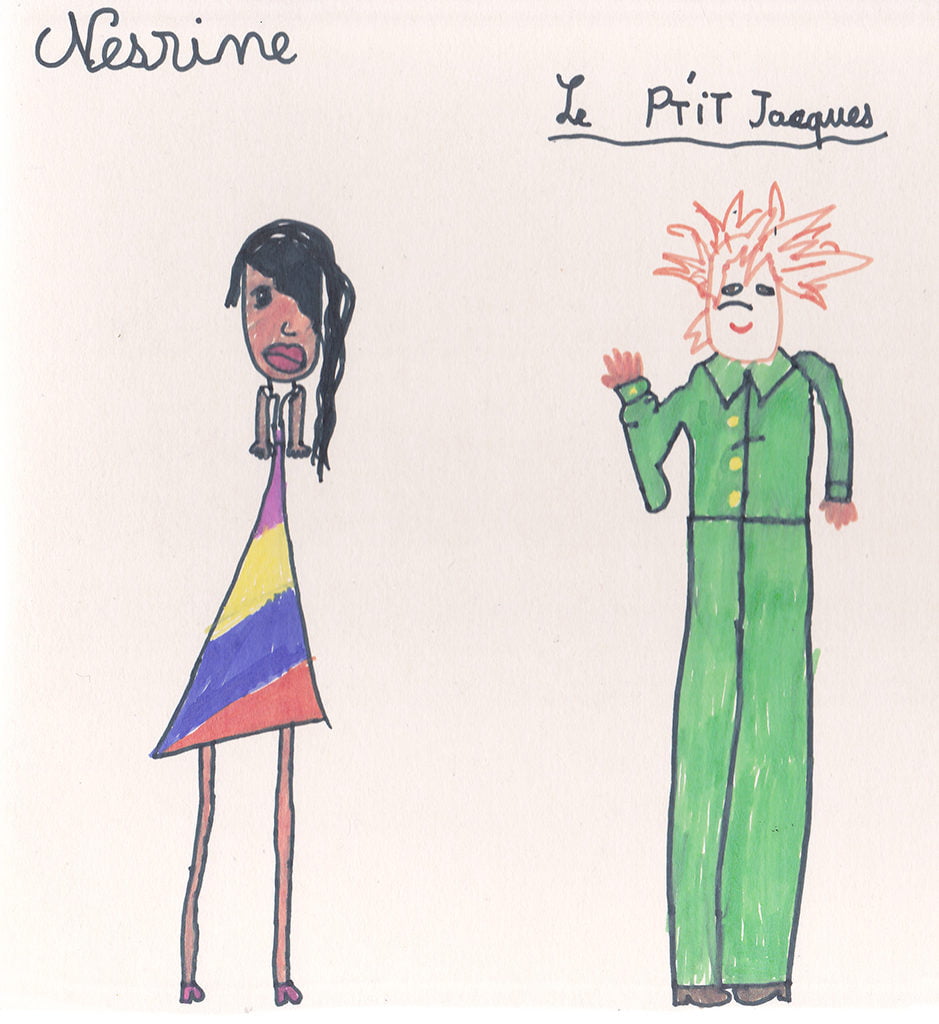 Nesrine
Le P't'iT Jacques